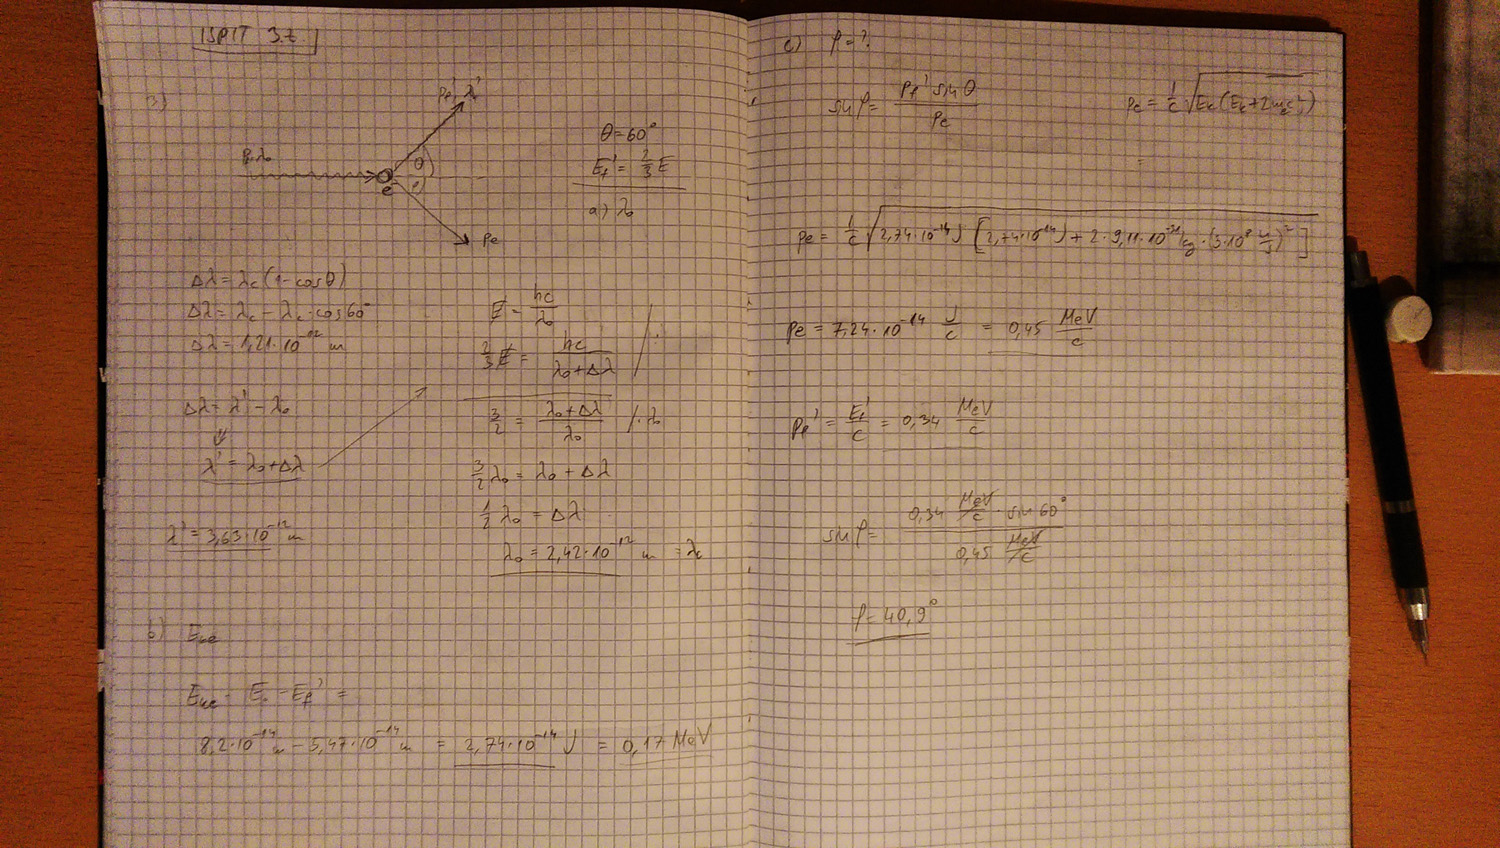 ISPIT 3.z.
3)
Pf', λ'
P, λ₀
θ
φ
e⁻
Pe
θ = 60°
Ef' = 2/3 E
a) λ₀
Δλ = λc (1 - cosθ)
Δλ = λc - λc · cos60°
Δλ = 1,21·10⁻¹² m
Δλ = λ' - λ₀
⇓
λ' = λ₀ + Δλ
λ' = 3,63·10⁻¹² m
E = hc/λ₀
2/3 E = hc/(λ₀ + Δλ) / :
3/2 = (λ₀ + Δλ)/λ₀ / · λ₀
3/2 λ₀ = λ₀ + Δλ
1/2 λ₀ = Δλ
λ₀ = 2,42·10⁻¹² m = λc
b) Eke
Eke = E₀ - Ef' =
8,2·10⁻¹⁴ m - 5,47·10⁻¹⁴ m = 2,74·10⁻¹⁴ J = 0,17 MeV
c) φ = ?
sin φ = Pf' sin θ / Pe
Pe = 1/c √(Ek (Ek + 2mec²))
=
Pe = 1/c √(2,74·10⁻¹⁴ J [2,74·10⁻¹⁴ J + 2·9,11·10⁻³¹ kg·(3·10⁸ m/s)²])
Pe = 7,24·10⁻¹⁴ J/c = 0,45 MeV/c
Pf' = Ef'/c = 0,34 MeV/c
sin φ = 0,34 MeV/c · sin 60° / 0,45 MeV/c
φ = 40,9°